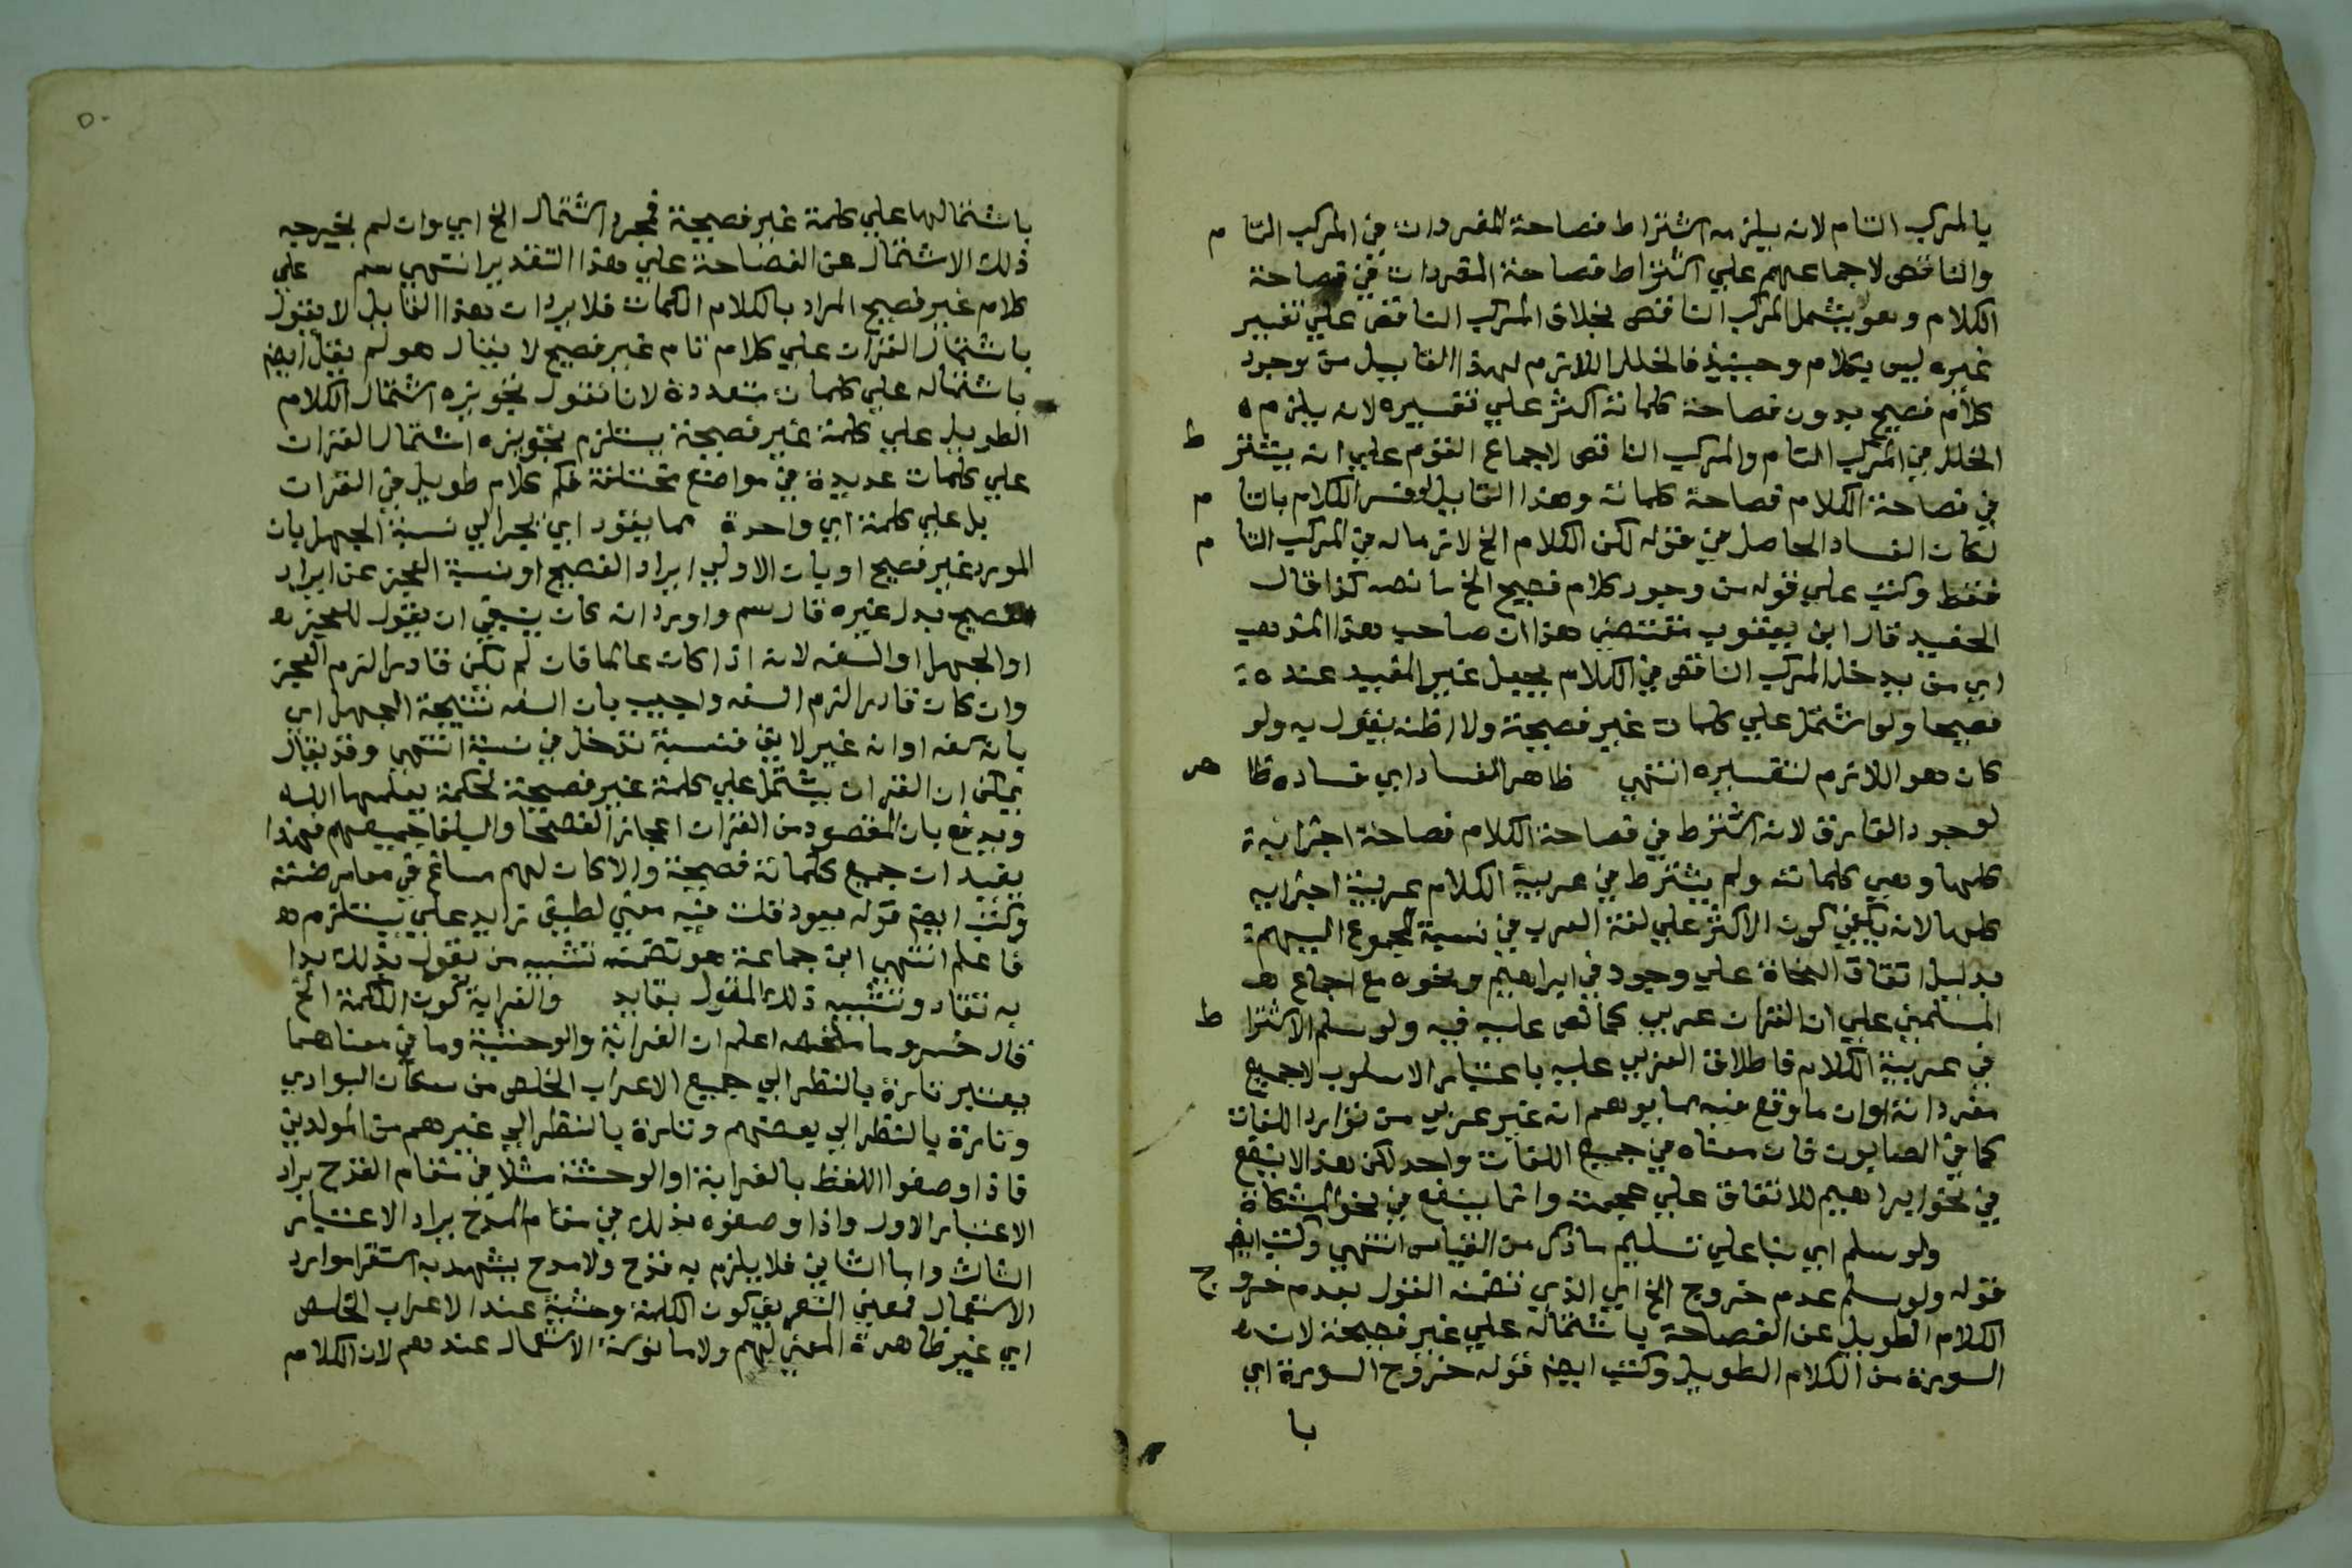 بالمركب التام لانه يلزمه اشتراط فصاحة المفردات في المركب التام
والناقص لاجماعهم علي اشتراط فصاحة المفردات في فصاحة
الكلام وهو يشمل المركب الناقص بخلاف المركب الناقص علي تفسير
غيره ليس بكلام وحينيذ فالخلل اللازم لهذا القايل من وجود
كلام فصيح بدون فصاحة كلماته اكثر علي تفسيره لانه يلزمه
الخلل في المركب التام والمركب الناقص لاجماع القوم علي انه يشترط
في فصاحة الكلام فصاحة كلماته وهذا القايل لو فسر الكلام بالتام
لكان الفساد الحاصل في قوله لكن الكلام الخ لازما له في المركب التام
فقط وكتب علي قوله من وجود كلام فصيح الخ ما نصه كذا قال
الحفيد قال ابن يعقوب مقتضي هذا ان صاحب هذا المذهب
اي من يدخل المركب الناقص في الكلام يجعل غير المفيد عنده
فصيحا ولو اشتمل علي كلمات غير فصيحة ولا اظنه يقول به ولو
كان هو اللازم لتفسيره انتهي ظاهر الفساد اي فساده ظاهر
لوجود الفارق لانه اشترط في فصاحة الكلام فصاحة اجزايه
كلها وهي كلماته ولم يشترط في عربية الكلام عربية اجزايه
كلها لانه يكفي كون الاكثر علي لغة العرب في نسبة المجموع اليهم
بدليل اتفاق النحاة علي وجود في ابراهيم ونحوه مع اجماع
المسلمين علي ان القران عربي كما نص عليه فيه ولو سلم الاشتراط
في عربية الكلام فاطلاق العربي عليه باعتبار الاسلوب لا جميع
مفرداته او ان ما وقع فيه مما يوهم انه غير عربي من توارد اللغات
كما في الصابون فان معناه في جميع اللغات واحد لكن هذا لا ينفع
في نحو ابراهيم للاتفاق علي عجمته وانما ينفع في نحو المشكاة
ولو سلم اي بنا علي تسليم ما ذكر من القياس انتهي وكتب ايضا
قوله ولو سلم عدم خروج الخ اي الذي تضمنه القول بعدم خروج
الكلام الطويل عن الفصاحة باشتماله علي غير فصيحة لان
السورة من الكلام الطويل وكتب ايضا قوله خروج السورة اي
با
٥٠
باشتمالها علي كلمة غير فصيحة فمجرد اشتمال الخ اي وان لم يخرجه
ذلك الاشتمال عن الفصاحة علي هذا التقدير انتهي سم علي
كلام غير فصيح المراد بالكلام الكلمات فلا يرد ان هذا القايل لا يقول
باشتمال القران علي كلام تام غير فصيح لا يقال هو لم يقل ايضا
باشتماله علي كلمات متعددة لانا نقول تجويزه اشتمال الكلام
الطويل علي كلمة غير فصيحة يستلزم تجويزه اشتمال القران
علي كلمات عديدة في مواضع مختلفة فكم كلام طويل في القران
بل علي كلمة اي واحدة مما يقود اي يجر الي نسبة الجهل بان
المورد غير فصيح او بان الاولي ايراد الفصيح او نسبة العجز عن ايراد
الفصيح بدل غيره قال سم واورد انه كان ينبغي ان يقول للعجز
او الجهل او السفه لانه اذا كان عالما فان لم يكن قادرا لزم العجز
وان كان قادرا لزم السفه واجيب بان السفه نتيجة الجهل اي
بانه سفه او انه غير لايق فنسبة تدخل في نسبة انتهي وقد يقال
يمكن ان القران يشتمل علي كلمة غير فصيحة لحكمة يعلمها الله
ويدفع بان المقصود من القران اعجاز الفصحا والبلغا جميعهم فهذا
يفيد ان جميع كلماته فصيحة والا كان لهم مساغ في معارضته
وكتب ايضا قوله يعود قلت فيه معني لطيف زايد علي يستلزم
فاعلم انتهي ابن جماعة هو تضمنه تشبيه من يقول بذلك
به تقاد وتشبيه ذلك المقول بقايد والغرابة كون الكلمة الخ
قال خسرو ما ملخصه اعلم ان الغرابة والوحشية وما في معناهما
يعتبر تارة بالنظر الي جميع الاعراب الخلص من سكان البوادي
وتارة بالنظر الي بعضهم وتارة بالنظر الي غيرهم من المولدين
فاذا وصفوا اللفظ بالغرابة او الوحشة مثلا في مقام القدح يراد
الاعتبار الاول واذا وصفوه بذلك في مقام المدح يراد الاعتبار
الثالث واما الثاني فلا يلزم به قدح ولا مدح يشهد به استقرا موارد
الاستعمال فمعني التعريف كون الكلمة وحشية عند الاعراب الخلص
اي غير ظاهرة المعني لهم ولا مانوسة الاستعمال عندهم لان الكلام